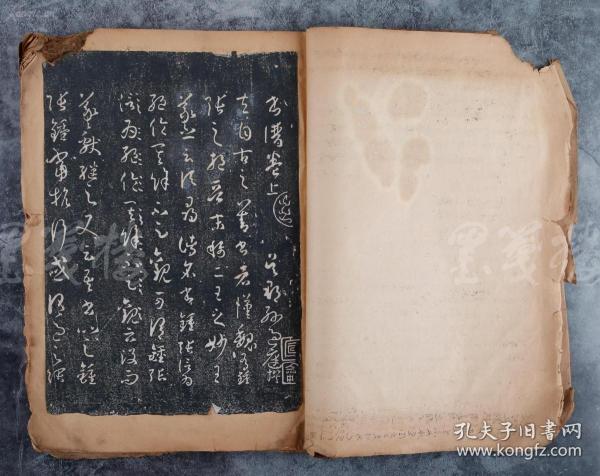 書譜卷上 吳郡孫過庭撰
夫自古之善書者漢魏有鍾
張之絕晉末稱二王之妙王
羲之云頃尋諸名書鍾張信為
絕倫其餘不足觀可謂鍾張
信為絕倫其餘不足觀云沒而
羲獻繼之又云吾書比之鍾
張鍾當抗行或謂過之張
墨笺楼
墨笺楼
孔夫子旧书网
www.kongfz.com